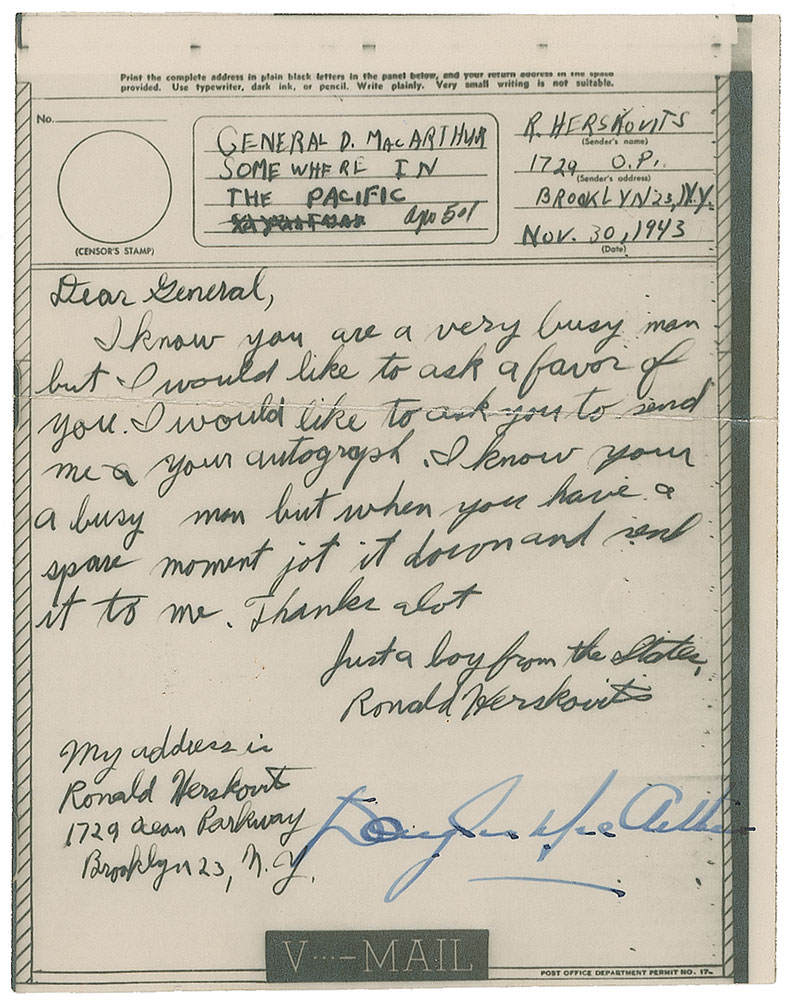 Print the complete address in plain black letters in the panel below, and your return address in the space
provided. Use typewriter, dark ink, or pencil. Write plainly. Very small writing is not suitable.
No.
(CENSOR'S STAMP)
GENERAL D. MACARTHUR
SOMEWHERE IN
THE PACIFIC
Apo 501
R. HERSKOVITS
(Sender's name)
1729 O.P.
(Sender's address)
BROOKLYN 23, N.Y.
NOV. 30, 1943
(Date)
Dear General,
I know you are a very busy man
but I would like to ask a favor of
you. I would like to ask you to send
me a your autograph. I know your
a busy man but when you have a
spare moment jot it down and send
it to me. Thanks alot
Just a boy from the States,
Ronald Herskovits
My address is
Ronald Herskovits
1729 Ocean Parkway
Brooklyn 23, N.Y.
Douglas MacArthur
V···—MAIL
POST OFFICE DEPARTMENT PERMIT NO. 17